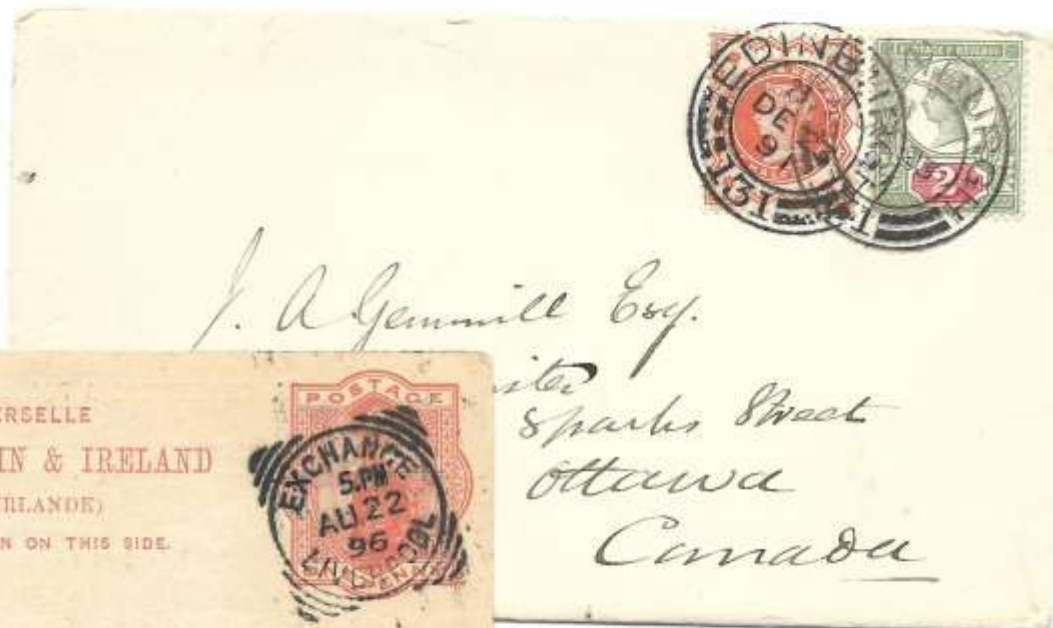 EDINBURGH
DE
91
131
POSTAGE & REVENUE
2
J. A. Gemmill Esq.
ister
Sparks Street
Ottawa
Canada
ERSELLE
IN & IRELAND
RLANDE)
N ON THIS SIDE.
POSTAGE
EXCHANGE
5.PM
AU 22
96
LIVERPOOL